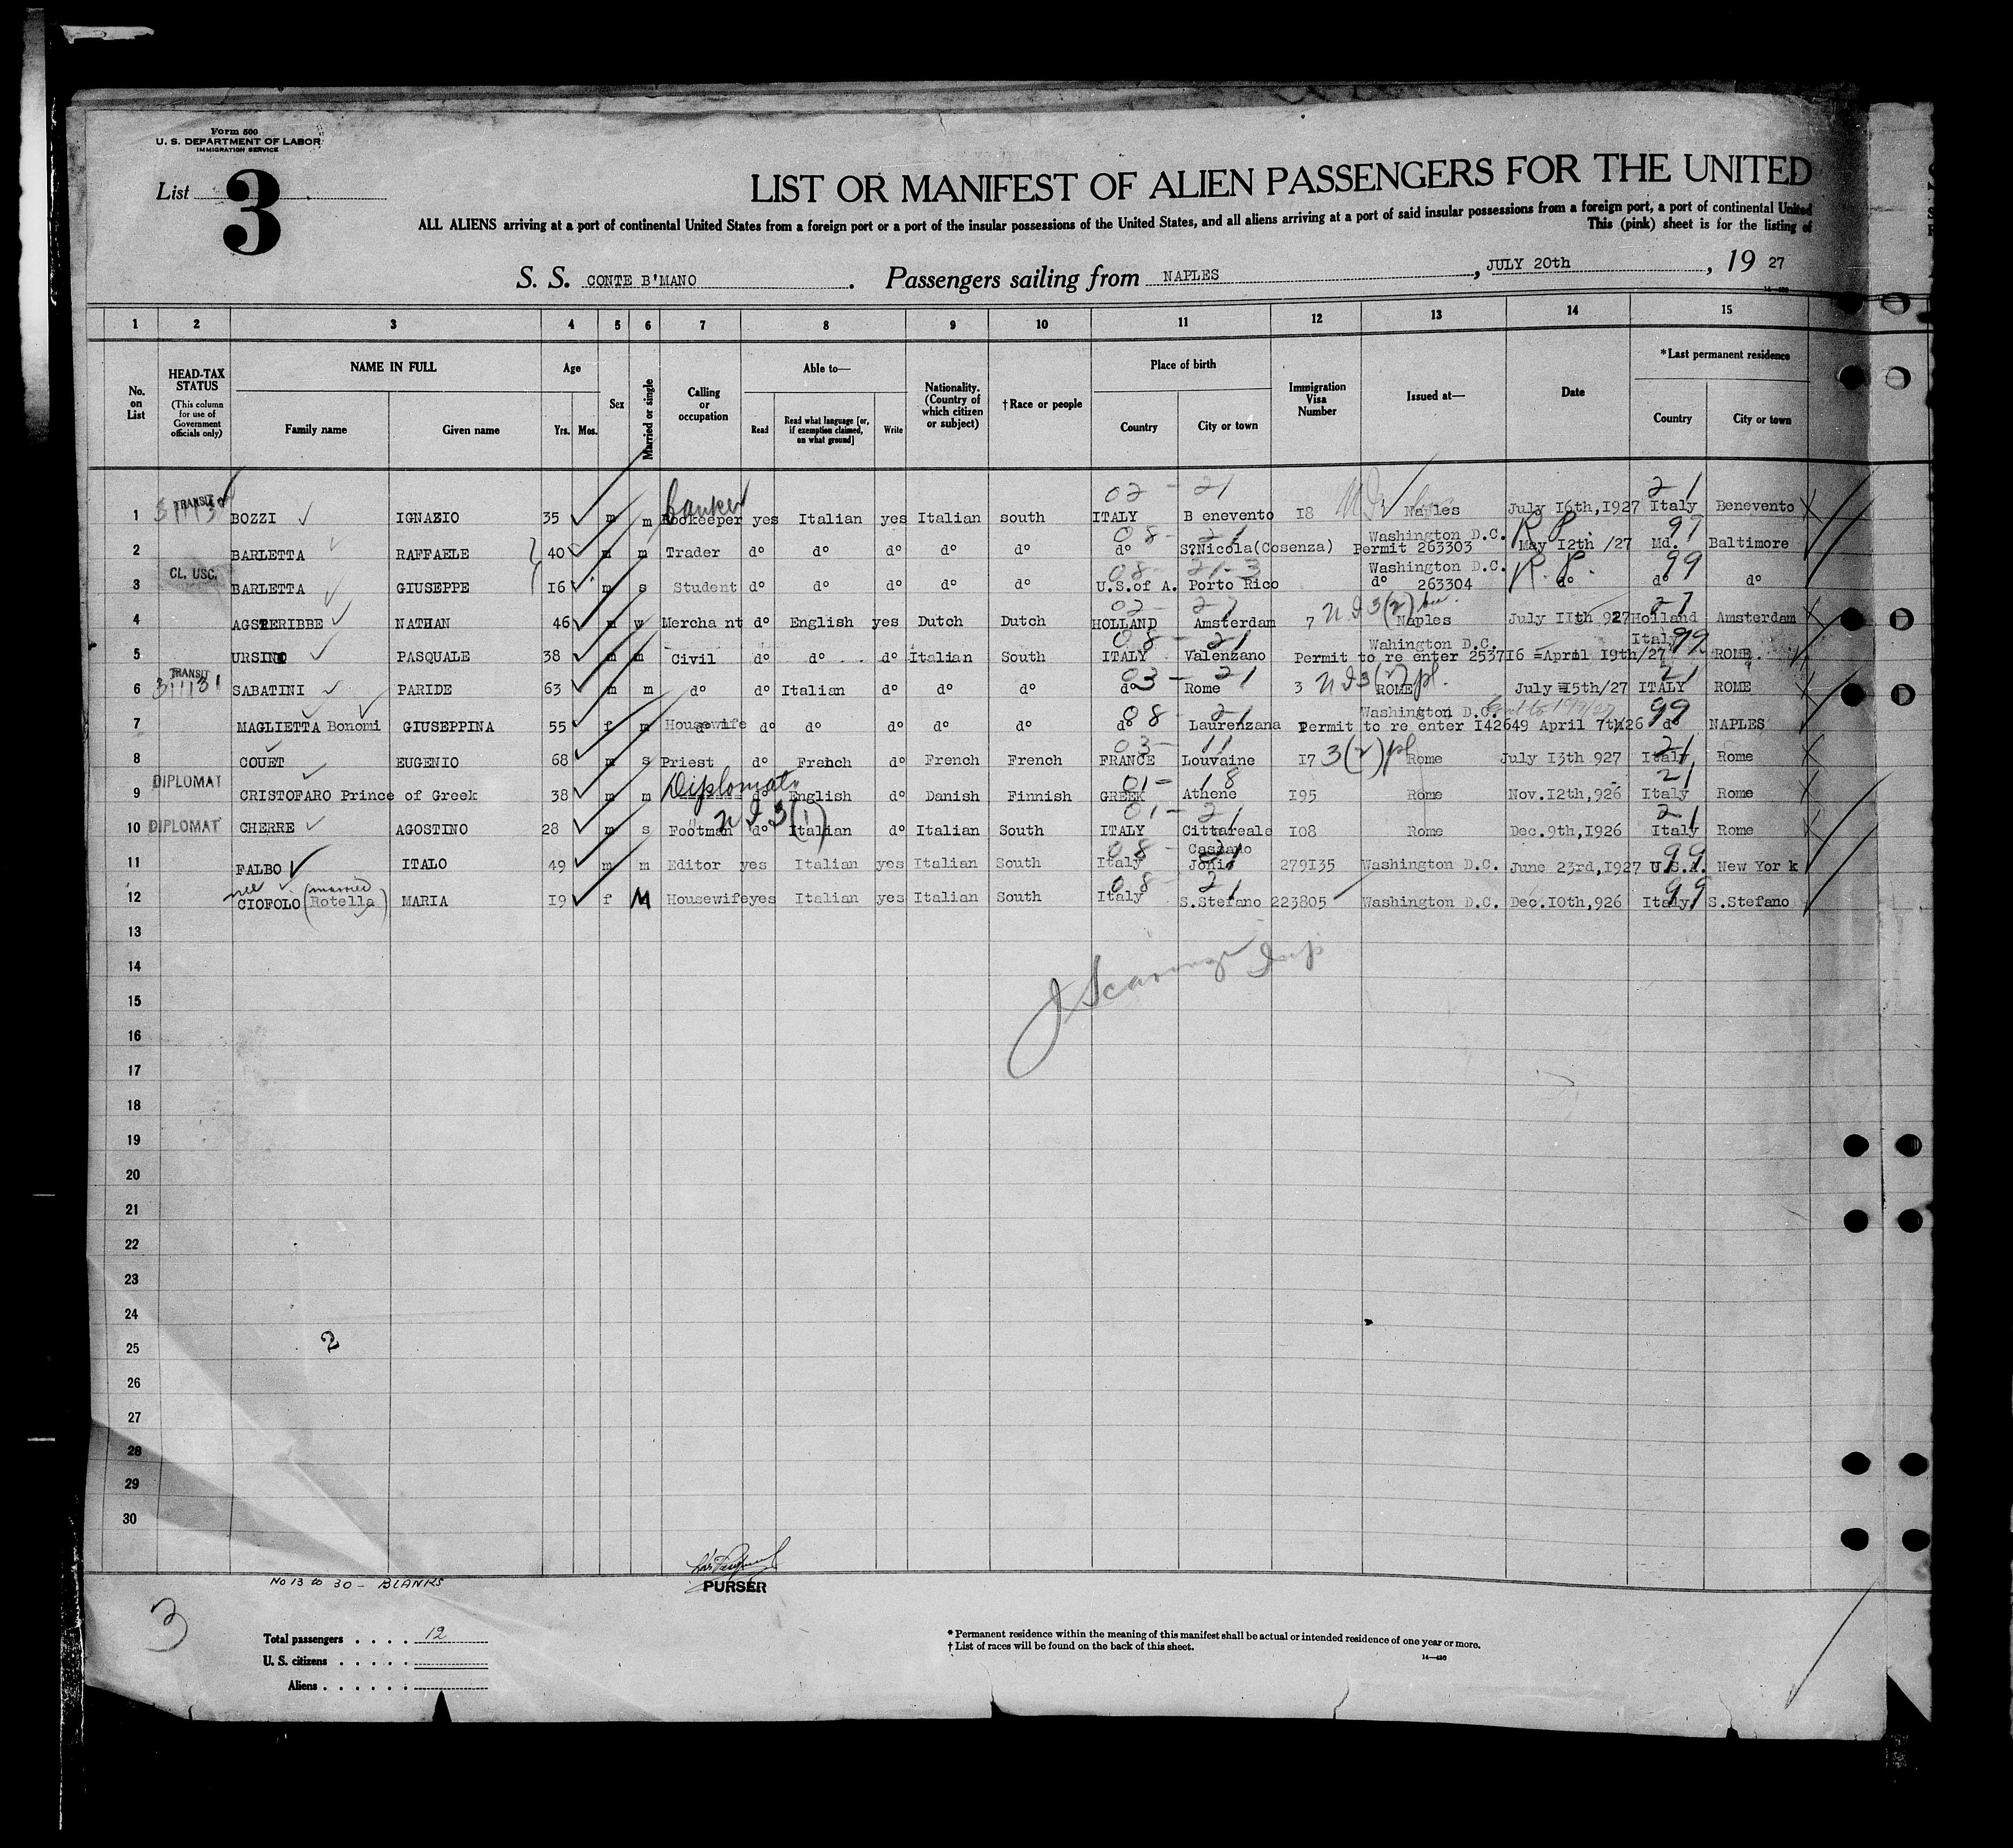 Form 500
U. S. DEPARTMENT OF LABOR
IMMIGRATION SERVICE
List 3
LIST OR MANIFEST OF ALIEN PASSENGERS FOR THE UNITED
ALL ALIENS arriving at a port of continental United States from a foreign port or a port of the insular possessions of the United States, and all aliens arriving at a port of said insular possessions from a foreign port, a port of continental United
This (pink) sheet is for the listing of
S. S. CONTE B'MANO. Passengers sailing from NAPLES, JULY 20th, 19 27
1 2 3 4 5 6 7 8 9 10 11 12 13 14 15
No. on List
HEAD-TAX STATUS (This column for use of Government officials only)
NAME IN FULL Family name Given name
Age Yrs. Mos.
Sex
Married or single
Calling or occupation
Able to— Read Read what language [or, if exemption claimed, on what ground] Write
Nationality. (Country of which citizen or subject)
†Race or people
Place of birth Country City or town
Immigration Visa Number
Issued at—
Date
*Last permanent residence Country City or town
02 - 21 21
1 TRANSIT BOZZI IGNAZIO 35 m m Bookeeper banker yes Italian yes Italian south ITALY B enevento I8 Naples July I6th,I927 Italy Benevento
08 - 21 Washington D.C. R.P. 99
2 BARLETTA RAFFAELE 40 m m Trader do do do do do do S?Nicola(Cosenza) Permit 263303 May I2th /27 Md. Baltimore
08 - 21-3 Washington D.C. R.P. 99
3 CL. USC. BARLETTA GIUSEPPE I6 m s Student do do do do do U.S.of A. Porto Rico do 263304 do do do
02 - 27 N I 3(2) 27
4 AGSTERIBBE NATHAN 46 m w Mercha nt do English yes Dutch Dutch HOLLAND Amsterdam 7 Naples July IIth 927 Holland Amsterdam
08 - 21 Wahington D.C. Italy 99
5 URSINI PASQUALE 38 m m Civil do do do Italian South ITALY Valenzano Permit to re enter 2537I6 =April I9th/27 ROME
03 - 21 N I 3(2) pl. 21
6 TRANSIT SABATINI PARIDE 63 m m do do Italian do do do do Rome 3 ROME July I5th/27 ITALY ROME
08 - 21 Washington D.C. 99
7 MAGLIETTA Bonomi GIUSEPPINA 55 f m Housewife do do do do do do do Laurenzana Permit to re enter I42649 April 7th/26 do NAPLES
03 - 11 3(2) pl 21
8 COUET EUGENIO 68 m s Priest do French do French French FRANCE Louvaine I7 Rome July I3th 927 Italy Rome
01 - 18 21
9 DIPLOMAT CRISTOFARO Prince of Greek 38 m m Diplomat do English do Danish Finnish GREEK Athene I95 Rome Nov.I2th,926 Italy Rome
N I 3(1) 01 - 21 21
10 DIPLOMAT CHERRE AGOSTINO 28 m s Footman do Italian do Italian South ITALY Cittareale I08 Rome Dec.9th,I926 Italy Rome
08 - 21 Cassano 99
11 FALBO ITALO 49 m m Editor yes Italian yes Italian South Italy Jonio 279I35 Washington D.C. June 23rd,I927 U.S.A. New Yor k
nee (married 08 - 21 99
12 CIOFOLO (Rotella) MARIA I9 f M Housewife yes Italian yes Italian South Italy S.Stefano 223805 Washington D.C. Dec.I0th,926 Italy S.Stefano
13
14
15
16
17
18
19
20
21
22
23
24
25
2
26
27
28
29
30
No 13 to 30 - BLANKS
PURSER
3
Total passengers . . . . 12
U. S. citizens . . . . .
Aliens . . . . . .
* Permanent residence within the meaning of this manifest shall be actual or intended residence of one year or more.
† List of races will be found on the back of this sheet.
14—430